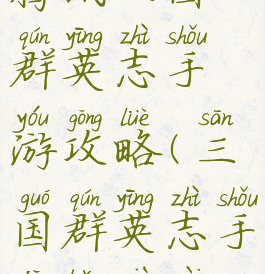 qún yīng zhì shǒu
群英志手
yóu gōng lüè sān
游攻略(三
guó qún yīng zhì shǒu
国群英志手